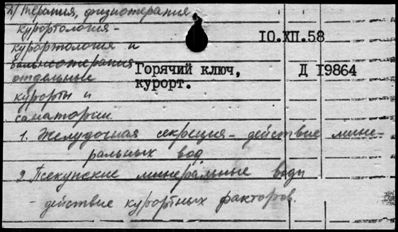 А) Терапия, физиотерапия
курортология-
курортология и
бальнеотерапия
отдельные
курорты и
санатории
10.XII.58
Горячий ключ,
курорт.
Д 19864
1. Желудочная секреция - действие мине-
ральных вод
2. Псекупские минеральные воды
- действие курортных факторов.